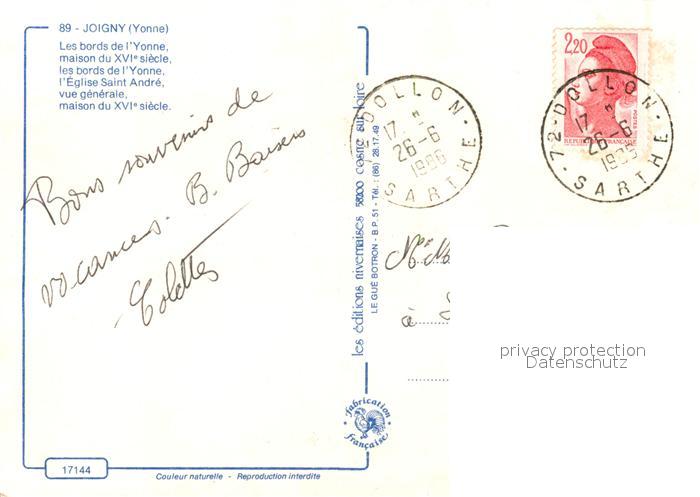 89 - JOIGNY (Yonne)
Les bords de l'Yonne,
maison du XVIe siècle,
les bords de l'Yonne,
l'Église Saint André,
vue générale,
maison du XVIe siècle.
Bons souvenirs de
vacances. B. Baisers
Colette
17144
Couleur naturelle - Reproduction interdite
les éditions nivernaises 58200 cosne sur loire
LE GUÉ BOTRON - B.P. 51 - Tél. : (86) 28.17.49
fabrication
française
DOLLON
17
26-6
1986
SARTHE
2,20
POSTES
REPUBLIQUE FRANÇAISE
72-DOLLON
17
26-6
1986
SARTHE
à
privacy protection
Datenschutz